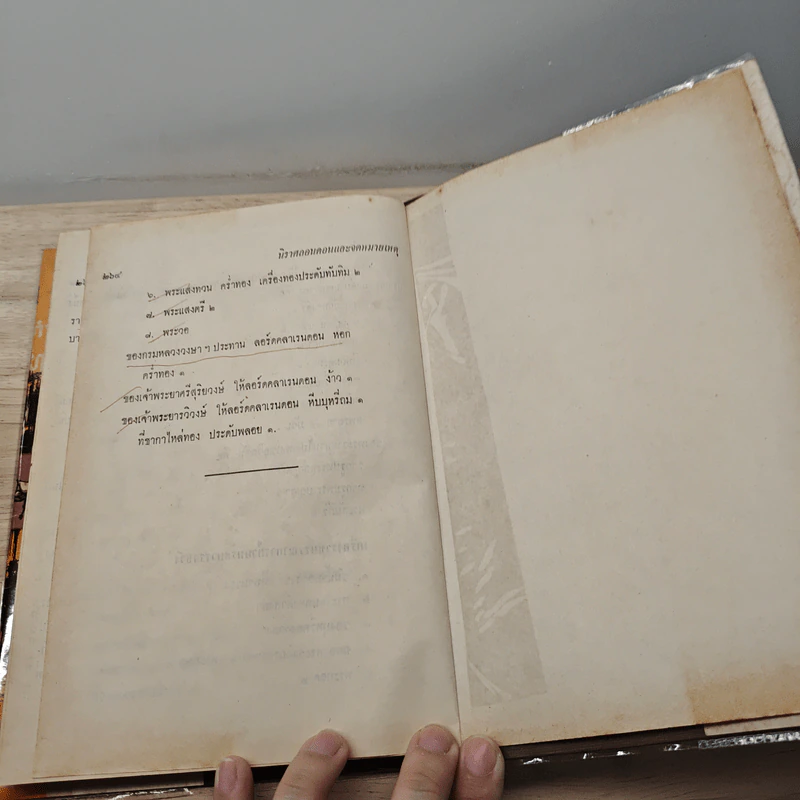 ๒๖๔
นิราศลอนดอนและจดหมายเหตุ
๖. พระแสงทวน คร่ำทอง เครื่องทองประดับทับทิม ๒
๗. พระแสงตรี ๒
๘. พระวอ
ของกรมหลวงวงษา ฯ ประทาน ลอร์ดคลาเรนดอน หอก
คร่ำทอง ๑
ของเจ้าพระยาศรีสุริยวงษ์ ให้ลอร์ดคลาเรนดอน ง้าว ๑
ของเจ้าพระยารวิวงษ์ ให้ลอร์ดคลาเรนดอน หีบบุหรี่ถม ๑
ที่ชากาไหล่ทอง ประดับพลอย ๑.